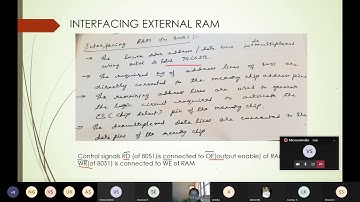 INTERFACING EXTERNAL RAM
Interfacing RAM to 8051:-
→ The lower order address / data bus is de multiplexed
using octal D latch 74LS373
→ The required no of address lines of 8051 are
directly connected to the memory chip address pins
→ The remaining address lines are used to generate
the logic circuit required to activate the
CS (chip select) pin of the memory chip.
→ The demultiplexed data lines are connected to the
data pins of the memory chip
Control signals RD (of 8051) is connected to OE(output enable) of RA
WR(of 8051) is connected to WE of RAM
VS
UN
NG
VS
UB
AS
VS
SE
S
LK
SS